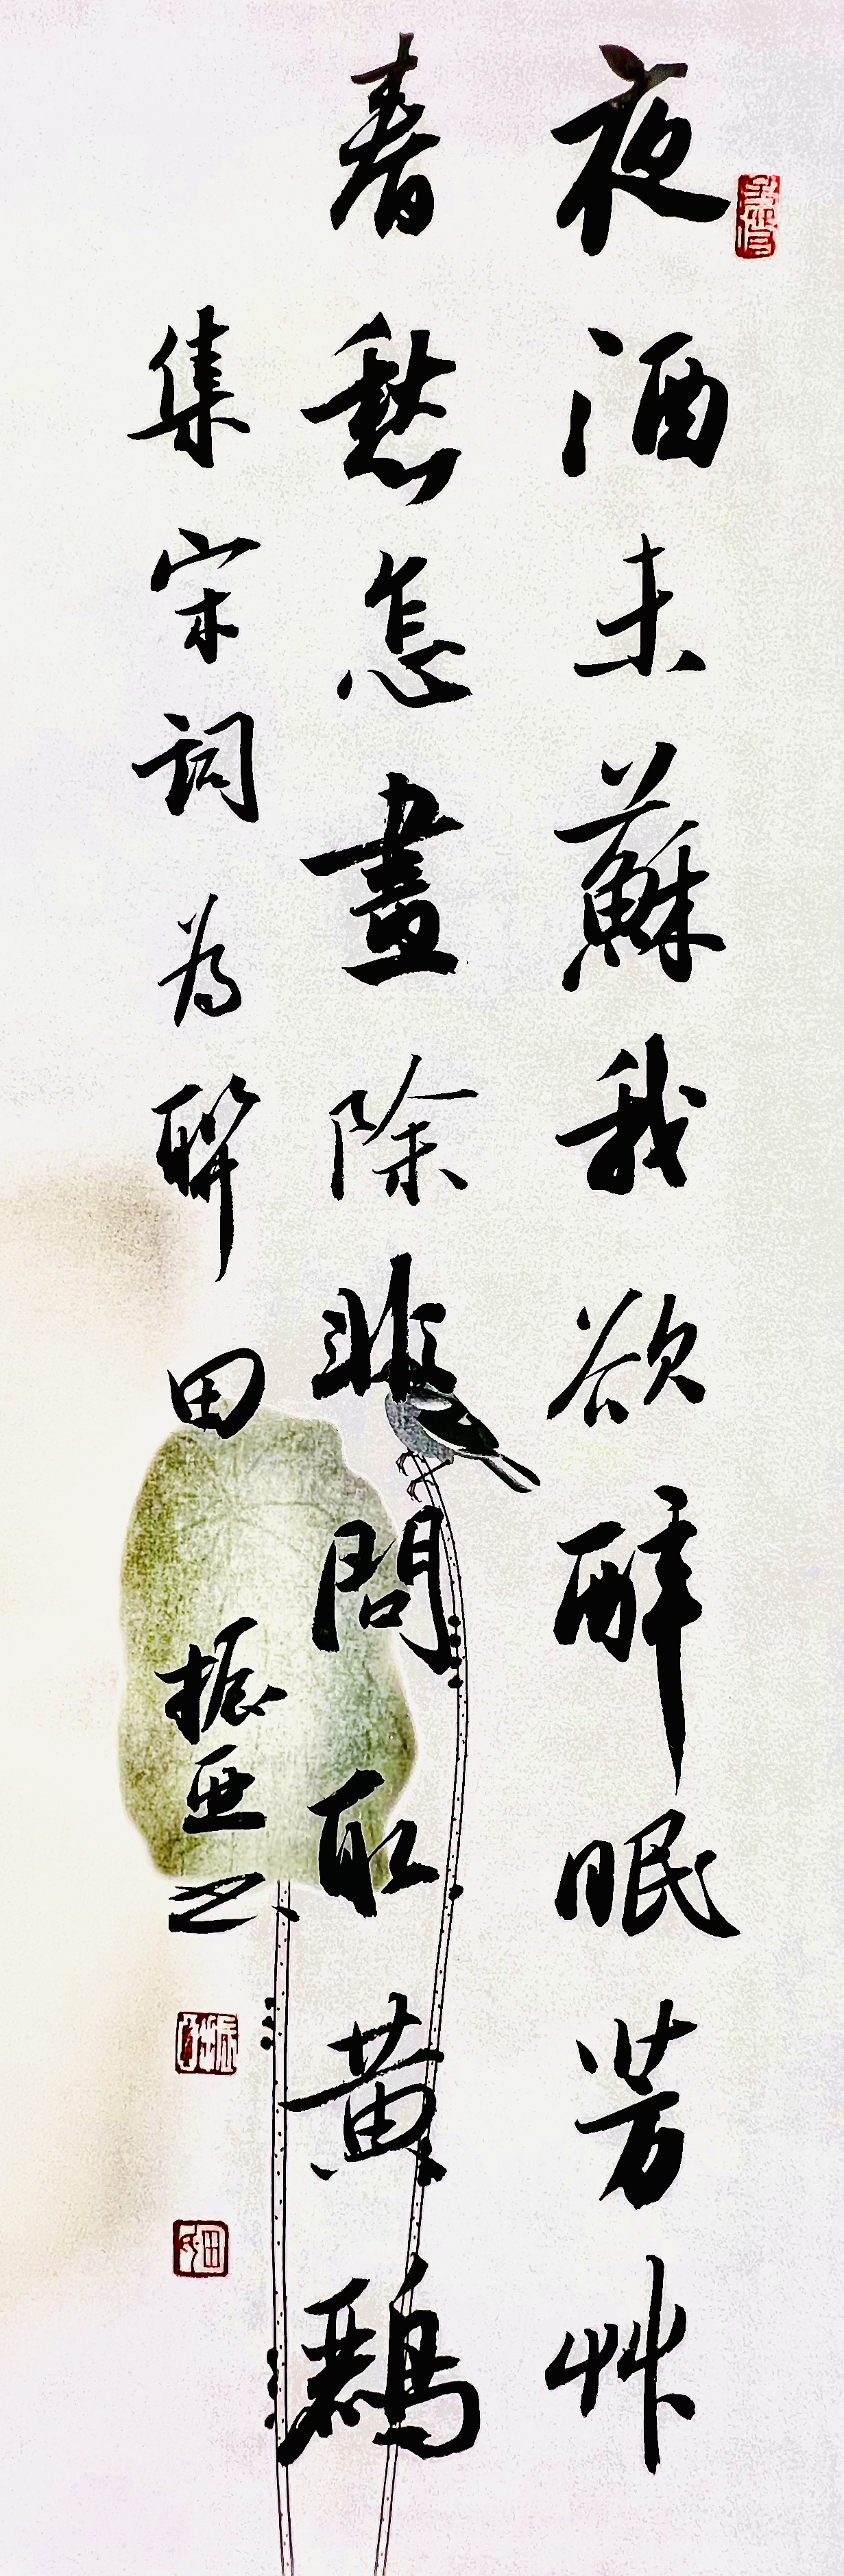 夜酒未蘇我欲醉眠芳艸
春愁怎畫除非問取黃鸝
集宋詞為聯 田振亞之